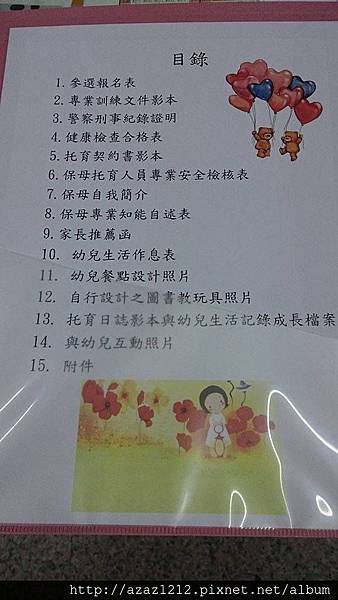 目錄
1.參選報名表
2.專業訓練文件影本
3.警察刑事紀錄證明
4.健康檢查合格表
5.托育契約書影本
6.保母托育人員專業安全檢核表
7.保母自我簡介
8.保母專業知能自述表
9.家長推薦函
10. 幼兒生活作息表
11. 幼兒餐點設計照片
12. 自行設計之圖書教玩具照片
13. 托育日誌影本與幼兒生活記錄成長檔案
14. 與幼兒互動照片
15. 附件
http://azaz1212.pixnet.net/album